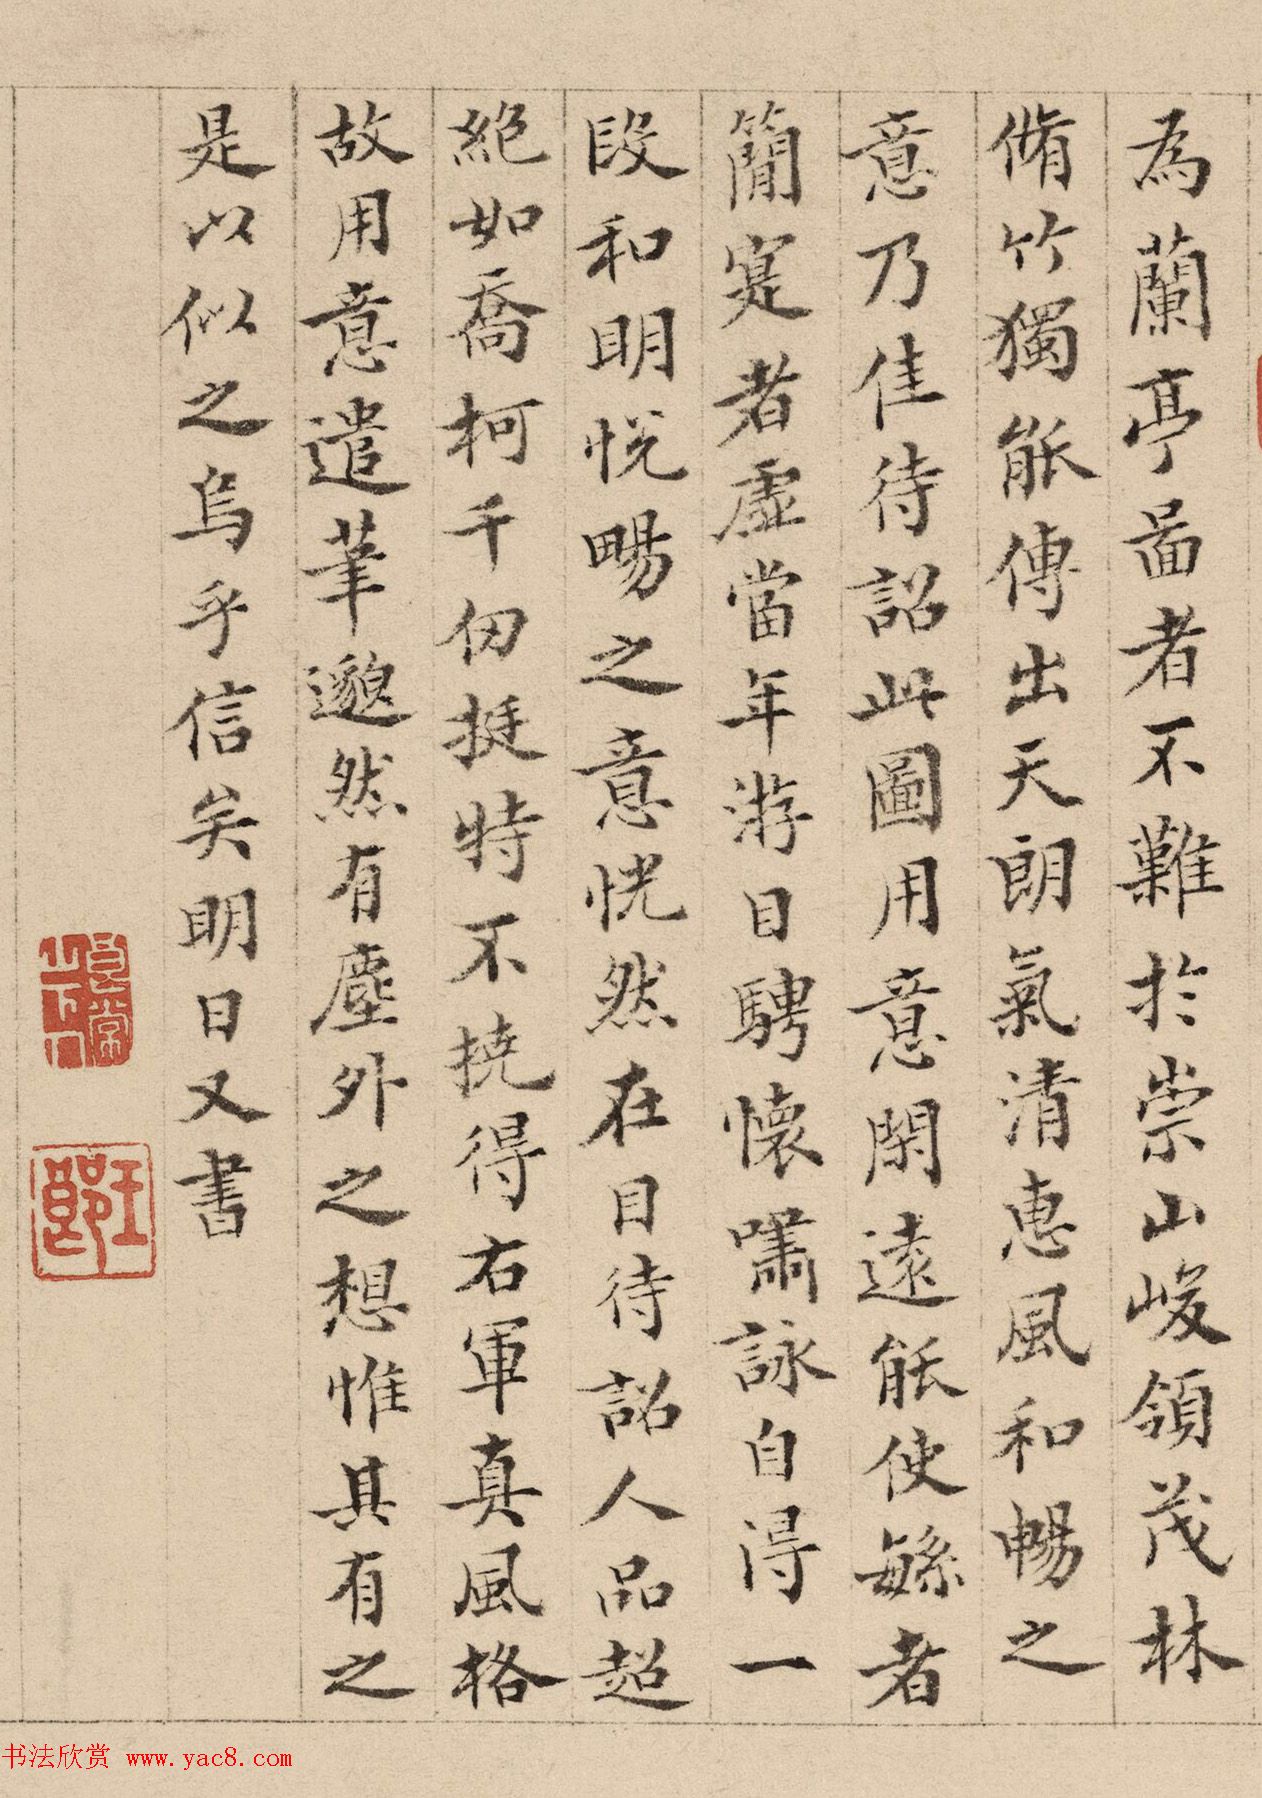 為蘭亭啚者不難於崇山峻領茂林
脩竹獨能傳出天朗氣清惠風和暢之
意乃佳待詔此圖用意閑遠能使繇者
簡寔者虛當年游目騁懷嘯詠自得一
段和明悅暢之意恍然在目待詔人品超
絕如喬柯千仞挺特不撓得右軍真風格
故用意遣筆邈然有塵外之想惟具有之
是以似之烏乎信矣明日又書
书法欣赏 www.yac8.com